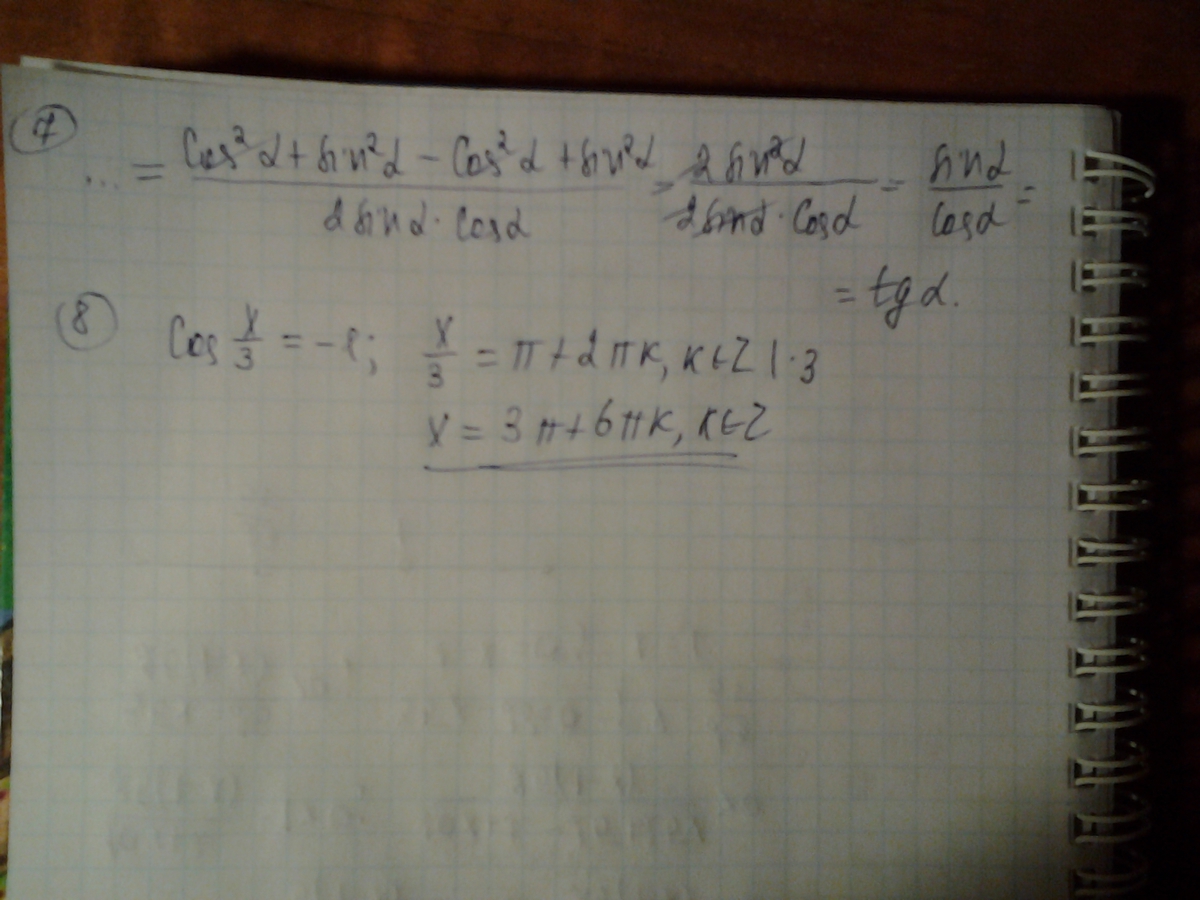 7 ... = (cos²α + sin²α - cos²α + sin²α)/(2sinα · cosα) = 2sin²α/(2sinα · cosα) = sinα/cosα =
= tgα.
8 cos x/3 = -1; x/3 = π + 2πк, к∈Z | · 3
x = 3π + 6πк, к∈Z